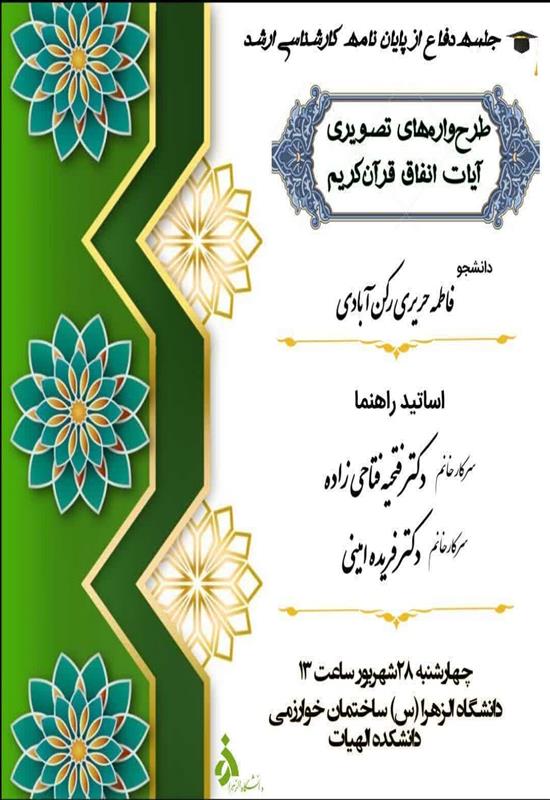 جلسه دفاع از پایان نامه کارشناسی ارشد
طرح‌واره‌های تصویری
آیات انفاق قرآن‌کریم
دانشجو
فاطمه حریری رکن آبادی
اساتید راهنما
سرکار خانم دکتر فتحیه فتاحی زاده
سرکار خانم دکتر فریده امینی
چهارشنبه ۲۸شهریور ساعت ۱۳
دانشگاه الزهرا (س) ساختمان خوارزمی
دانشکده الهیات
دانشگاه الزهرا